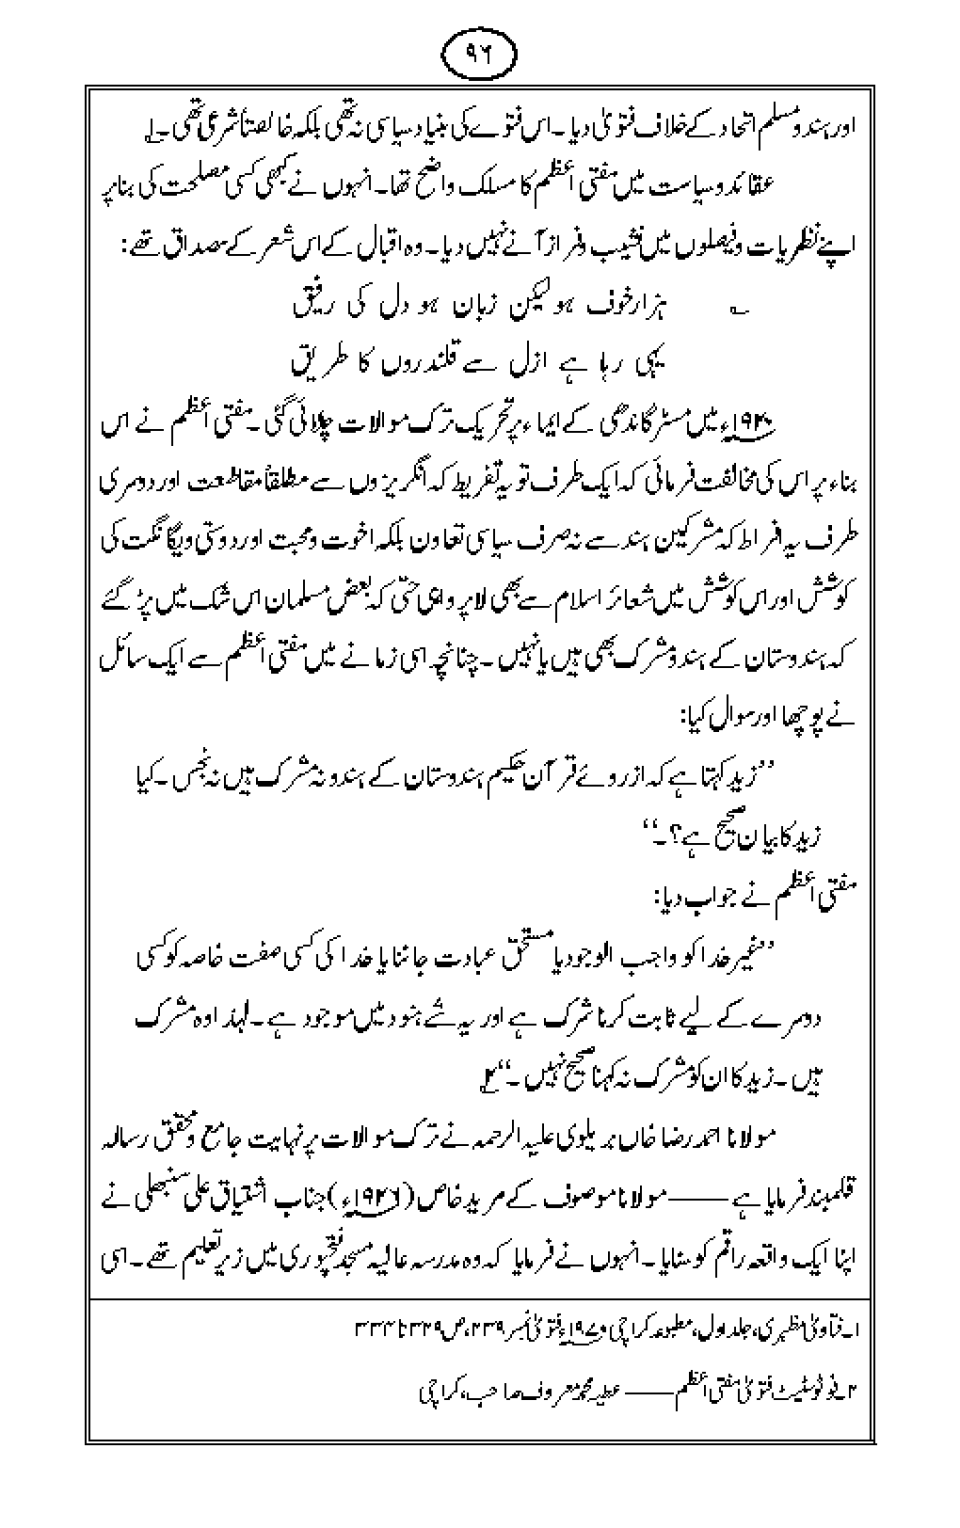 ۹۶
اور ہندو مسلم اتحاد کے خلاف فتویٰ دیا۔ اس فتوے کی بنیاد سیاسی نہ تھی بلکہ خالصتاً شرعی تھی۔ ۱
عقائد و سیاست میں مفتی اعظم کا مسلک واضح تھا۔ انہوں نے کبھی کسی مصلحت کی بنا پر
اپنے نظریات و فیصلوں میں نشیب و فراز آنے نہیں دیا۔ وہ اقبال کے اس شعر کے مصداق تھے:
؎ ہزار خوف ہو لیکن زبان ہو دل کی رفیق
یہی رہا ہے ازل سے قلندروں کا طریق
۱۹۲۰ء میں مسٹر گاندھی کے ایماء پر تحریک ترک موالات چلائی گئی۔ مفتی اعظم نے اس
بناء پر اس کی مخالفت فرمائی کہ ایک طرف تو یہ تفریط کہ انگریزوں سے مطلقاً مقاطعت اور دوسری
طرف یہ افراط کہ مشرکین ہند سے نہ صرف سیاسی تعاون بلکہ اخوت و محبت اور دوستی و یگانگت کی
کوشش اور اس کوشش میں شعائر اسلام سے بھی لاپرواہی حتیٰ کہ بعض مسلمان اس شک میں پڑ گئے
کہ ہندوستان کے ہندو مشرک بھی ہیں یا نہیں۔ چنانچہ اسی زمانے میں مفتی اعظم سے ایک سائل
نے پوچھا اور سوال کیا:
’’زید کہتا ہے کہ ازروئے قرآن حکیم ہندوستان کے ہندو نہ مشرک ہیں نہ نجس۔ کیا
زید کا بیان صحیح ہے؟۔‘‘
مفتی اعظم نے جواب دیا:
’’غیر خدا کو واجب الوجود یا مستحق عبادت جاننا یا خدا کی کسی صفت خاصہ کو کسی
دوسرے کے لیے ثابت کرنا شرک ہے اور یہ شے ہنود میں موجود ہے۔ لہٰذا وہ مشرک
ہیں۔ زید کا ان کو مشرک نہ کہنا صحیح نہیں۔‘‘ ۲
مولانا احمد رضا خاں بریلوی علیہ الرحمہ نے ترک موالات پر نہایت جامع و محقق رسالہ
قلمبند فرمایا ہے —— مولانا موصوف کے مرید خاص (۱۹۲۱ء) جناب اشتیاق علی سنبھلی نے
اپنا ایک واقعہ راقم کو سنایا۔ انہوں نے فرمایا کہ وہ مدرسہ عالیہ مسجد فتحپوری میں زیر تعلیم تھے۔ اسی
۱۔ فتاویٰ مظہری، جلد اول، مطبوعہ کراچی ۱۹۷۰ء فتویٰ نمبر ۲۳۹، ص ۳۲۹ تا ۳۳۴
۲۔ فوٹو سٹیٹ فتویٰ مفتی اعظم —— عطیہ محمد معروف صاحب، کراچی